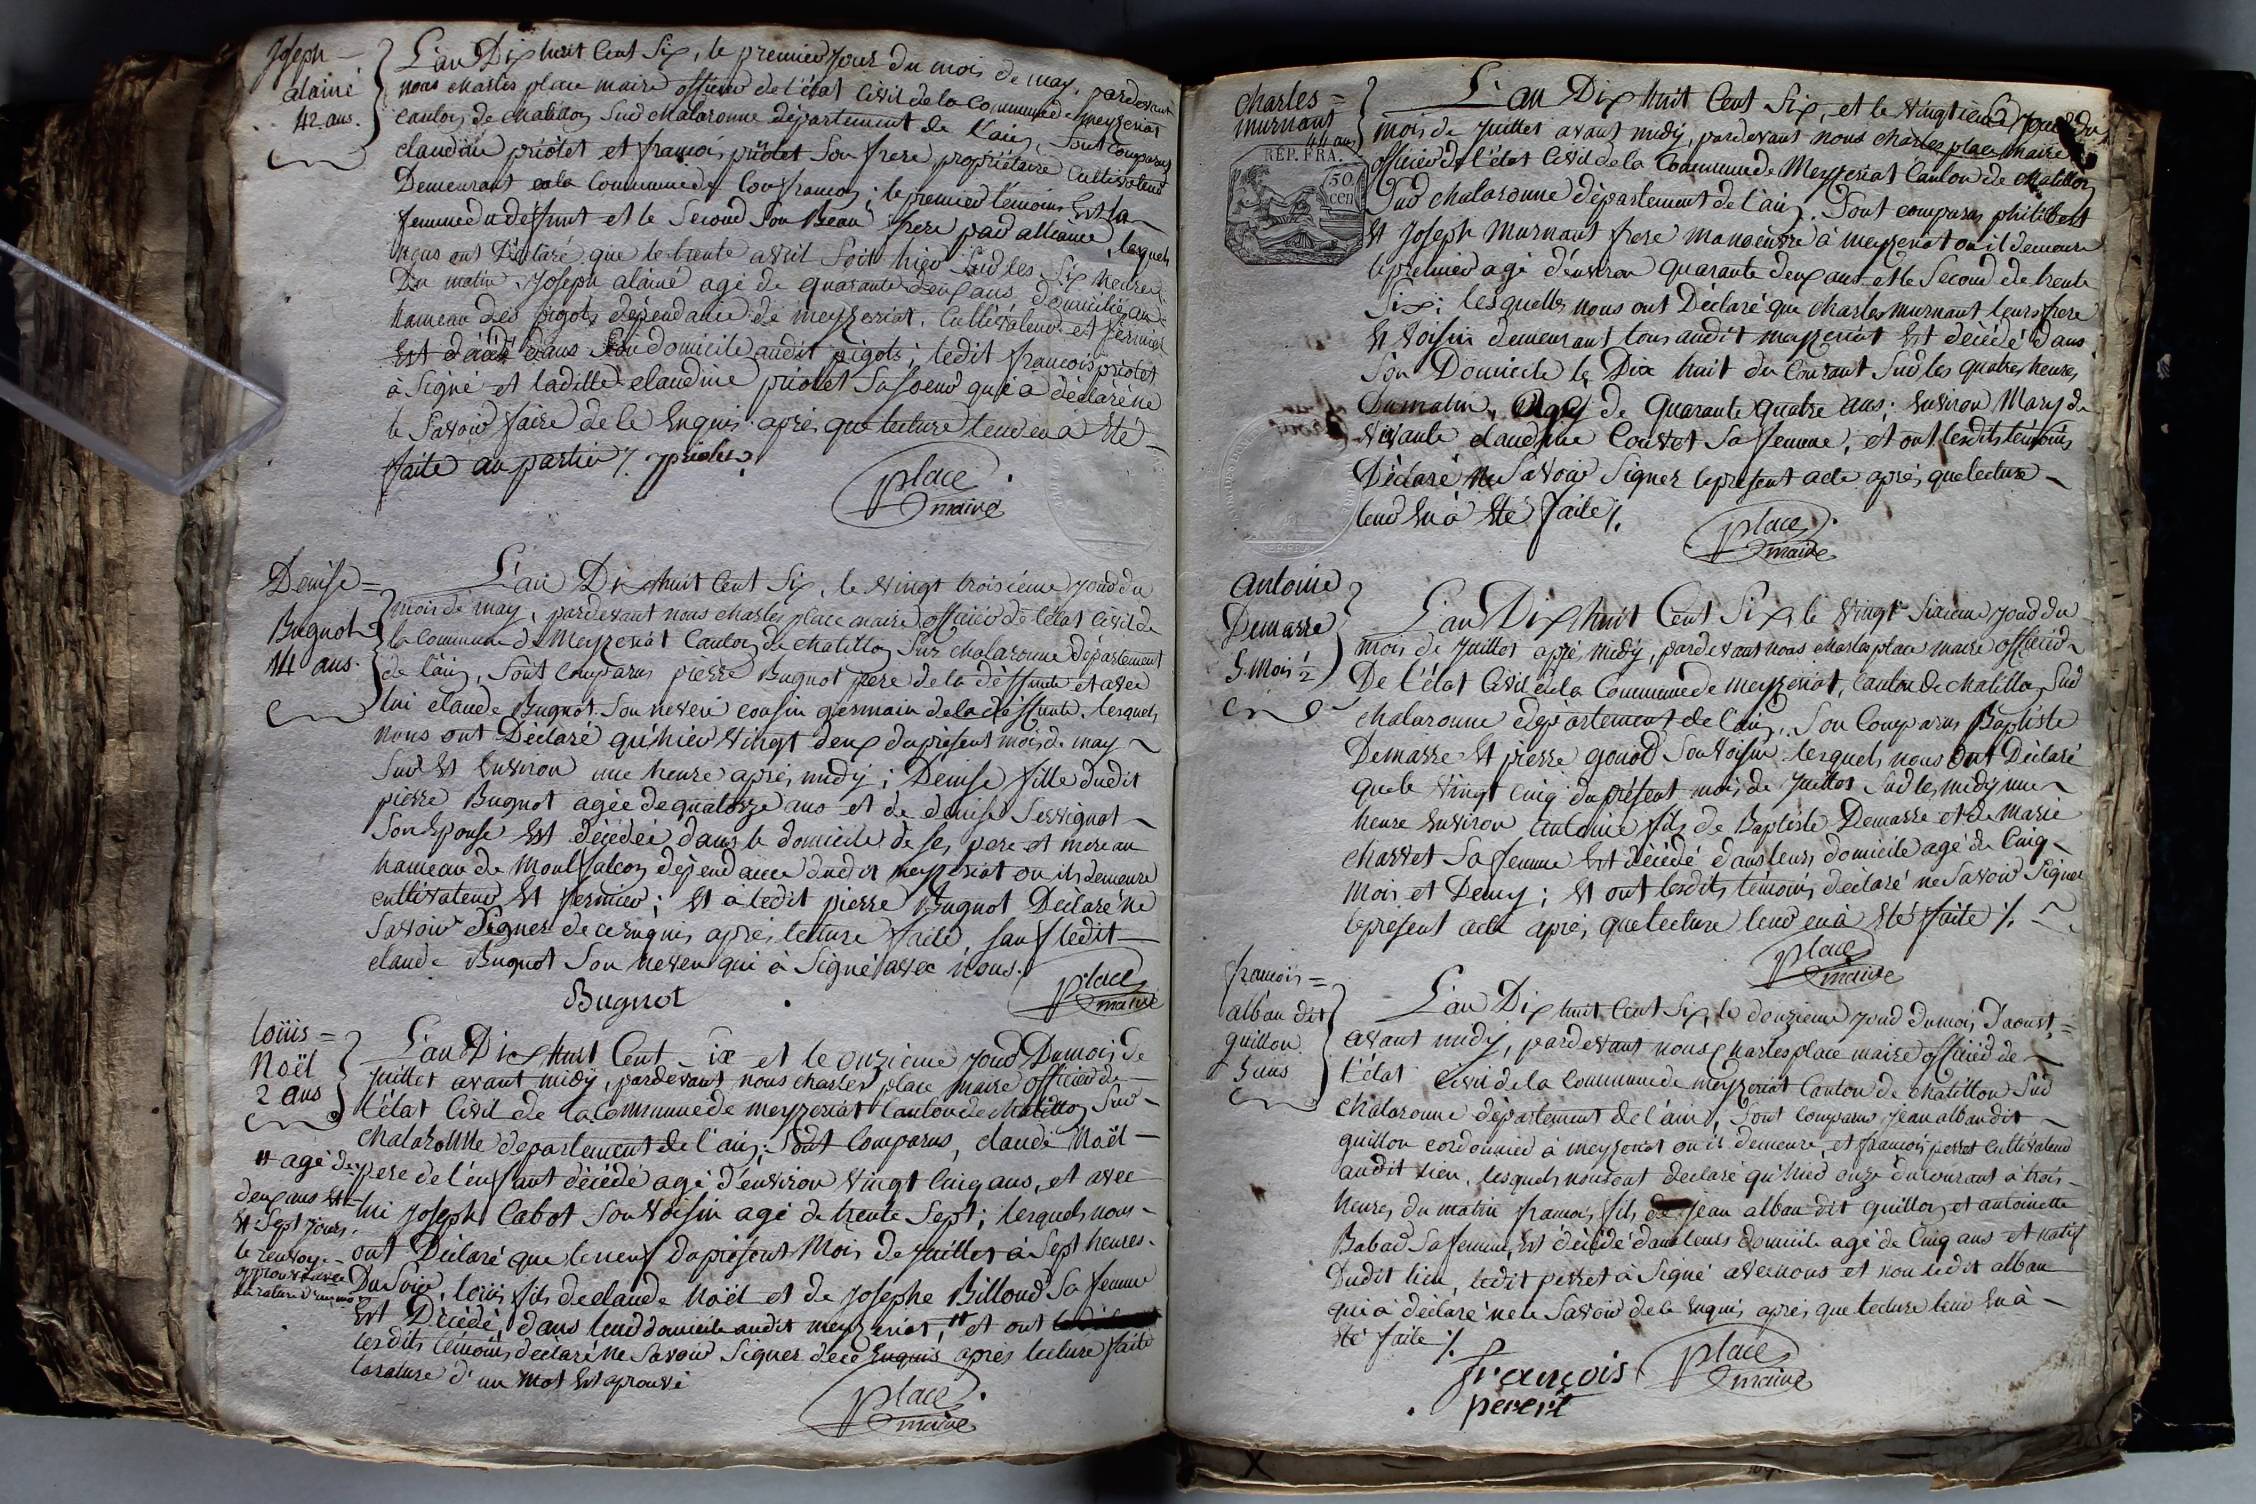 Joseph =
alainé
42 ans.
L'an Dix huit Cent Six, le premier jour du mois de may, pardevant
nous charles place maire officier de l'état Civil de la Commune de meyzeriat
canton de chatillon Sur chalaronne département de l'ain, Sont comparus
claudine priolet et françois priolet Son frere propriétaire Cultivateur
Demeurant en la Commune de Confrançon ; le premier témoins Est la
femme du deffunt et le Second Son Beau frere par alliance, lesquels
nous ont Déclaré que le trente avril Soit hier Sur les Six heures
Du matin Joseph alainé agé de quarante deux ans domicilié au
hameau des pigots dépendance de meyzeriat, Cultivateur et fermier
Est décédé dans Son domicile audit pigots ; ledit françois priolet
à Signé et ladille claudine priolet Sa Soeur qui a déclaré ne
le Savoir faire de le Enquis aprés que lecture leur en à Eté
faite au partie /. priolet
place
maire
Denise =
Bugnot
14 ans.
L'an Dix huit Cent Six, le vingt troisiéme jour du
mois de may, pardevant nous charles place maire officier de l'état Civil de
la Commune de Meyzeriat Canton de chatillon Sur chalaronne département
de l'ain, Sont Comparus pierre Bugnot pere de la deffunte et avec
lui claude Bugnot Son neveu cousin germain de la deffunte. lesquels
nous ont Déclaré qu'hier vingt deux du présent mois de may
Sur Et Environ une heure aprés midy ; Denise fille dudit
pierre Bugnot agée de quatorze ans et de denise Servignat
Son Epouse Est décédée dans le domicile de Ses pere et mere au
hameau de Montfalcon dépendance dudit meyzeriat ou ils demeure
cultivateur Et fermier ; Et à ledit pierre Bugnot Déclaré ne
Savoir Signer de ce Enquis aprés lecture faite, Sauf ledit
claude Bugnot Son neveu qui à Signé avec nous.
Bugnot
place
maire
loüis =
Noël
2 ans
L'an Dix huit Cent Six et le onziéme jour Du mois de
juillet avant midy, pardevant nous charles place maire officier de
l'état Civil de la Commune de meyzeriat Canton de chatillon Sur
chalaronne département de l'ain ; Sont Comparus, claude Noël
pere de l'enfant décédé agé d'environ vingt Cinq ans, et avec
lui Joseph Cabot Son voisin agé de trente Sept ; lesquels nous
ont Déclaré que le neuf du présent Mois de juillet à Sept heures
Du Soir, loüis fils de claude Noël et de Josephe Billoud Sa femme
Est Décédé, dans leur domicile audit meyzeriat, # et ont
lesdits témoins déclaré Ne Savoir Signer de ce Enquis aprés lecture faite
la rature d'un mot Est aprouvé
# agé de
deux ans Et
Et Sept jours,
le renvoy
approuvé avec
la rature d'un mot
place
maire
charles =
murnant
44 ans
REP. FRA.
50
cen
L'an Dix huit Cent Six, et le vingtiéme jour du
mois de juillet avant midy, pardevant nous charles place maire
officier de l'état Civil de la Commune de Meyzeriat Canton de chatillon
Sur chalaronne département de l'ain. Sont comparus philibert
Et Joseph Murnant frere manoeuvre à meyzeriat ou il demeure
le premier agé d'environ quarante deux ans et le Second de trente
Six ; lesquelles nous ont Déclaré que charles murnant leurs frere
Et voisin demeurant tous audit meyzeriat Est décédé dans
Son Domicile le Dix huit du Courant Sur les quatres heures
Du matin, Agé de Quarante quatre ans ; Environ Mary de
vivante claudine Couvet Sa femme, et ont lesdits témoins
Déclaré Ne Savoir Signer le présent acte aprés que lecture
leur En à Eté faite /.
place
maire
antoine
Demarre
5 Mois ½
L'an Dix huit Cent Six, le vingt Sixiéme jour du
mois de juillet aprés midy, pardevant nous charles place maire officier
De l'état Civil de la Commune de meyzeriat, Canton de chatillon Sur
chalaronne département de l'ain, Son Comparus Baptiste
Demarre Et pierre gonod Son voisin lesquels nous Ont Déclaré
que le vingt cinq du présent mois de juillet Sur les midy une
heure Environ antoine fils de Baptiste Demarre et de Marie
charvet Sa femme Est décédé dans leurs domicile agé de Cinq
mois et Demy ; Et ont lesdits témoins déclaré ne Savoir Signer
le présent acte aprés que lecture leur en à Eté faite /.
place
maire
françois =
alban dit
guillon
5 ans
L'an Dix huit Cent Six, le douziéme jour du mois d'aoust =
avant midy, pardevant nous charles place maire officier de
l'état Civil de la Commune de meyzeriat Canton de chatillon Sur
chalaronne département de l'ain, Sont Comparus jean alban dit
guillon cordonnier à meyzeriat ou il demeure, et françois perret Cultivateur
audit lieu, lesquels nous ont déclaré qu'hier onze du courant à trois
heures du matin françois fils de jean alban dit guillon et antoinette
Babad Sa femme, Est décédé dans leurs domicile agé de Cinq ans et natif
Dudit lieu, ledit perret à Signé avec nous et non ledit alban
qui à déclaré ne le Savoir de le Enquis aprés que lecture leur En à
Eté faite /.
françois
pereret
place
maire
X